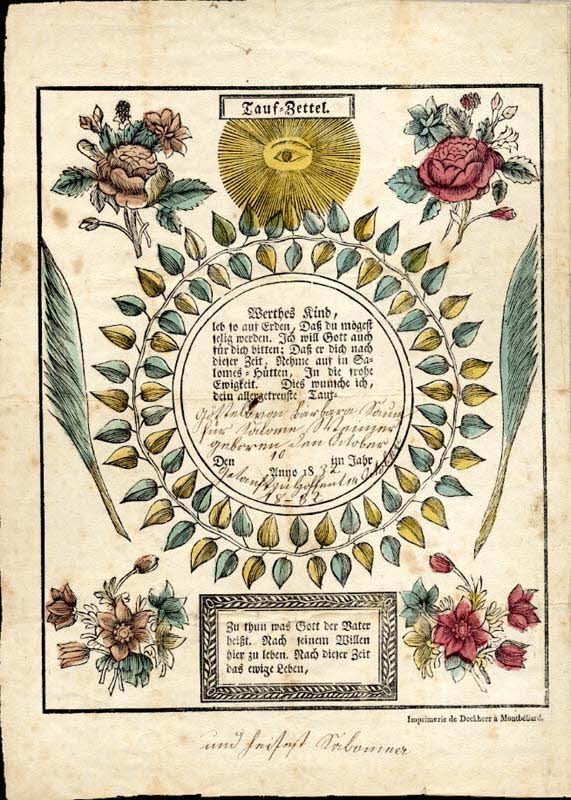 Tauf=Zettel.
Werthes Kind,
leb so auf Erden, Daß du mögest
selig werden. Ich will Gott auch
für dich bitten; Daß er dich nach
dieser Zeit, Nehme auf in Sa-
lomes=Hütten, In die frohe
Ewigkeit. Dies wunsche ich,
dein allergetreuste Tauf-
von Barbara
für Salome
geboren den October
Den 10 im Jahr
Anno 1832
getauft zu
18-32
Zu thun was Gott der Vater
heißt. Nach seinem Willen
hier zu leben. Nach dieser Zeit
das ewige Leben,
Imprimerie de Deckherr à Montbéliard.
und heisest Salomea